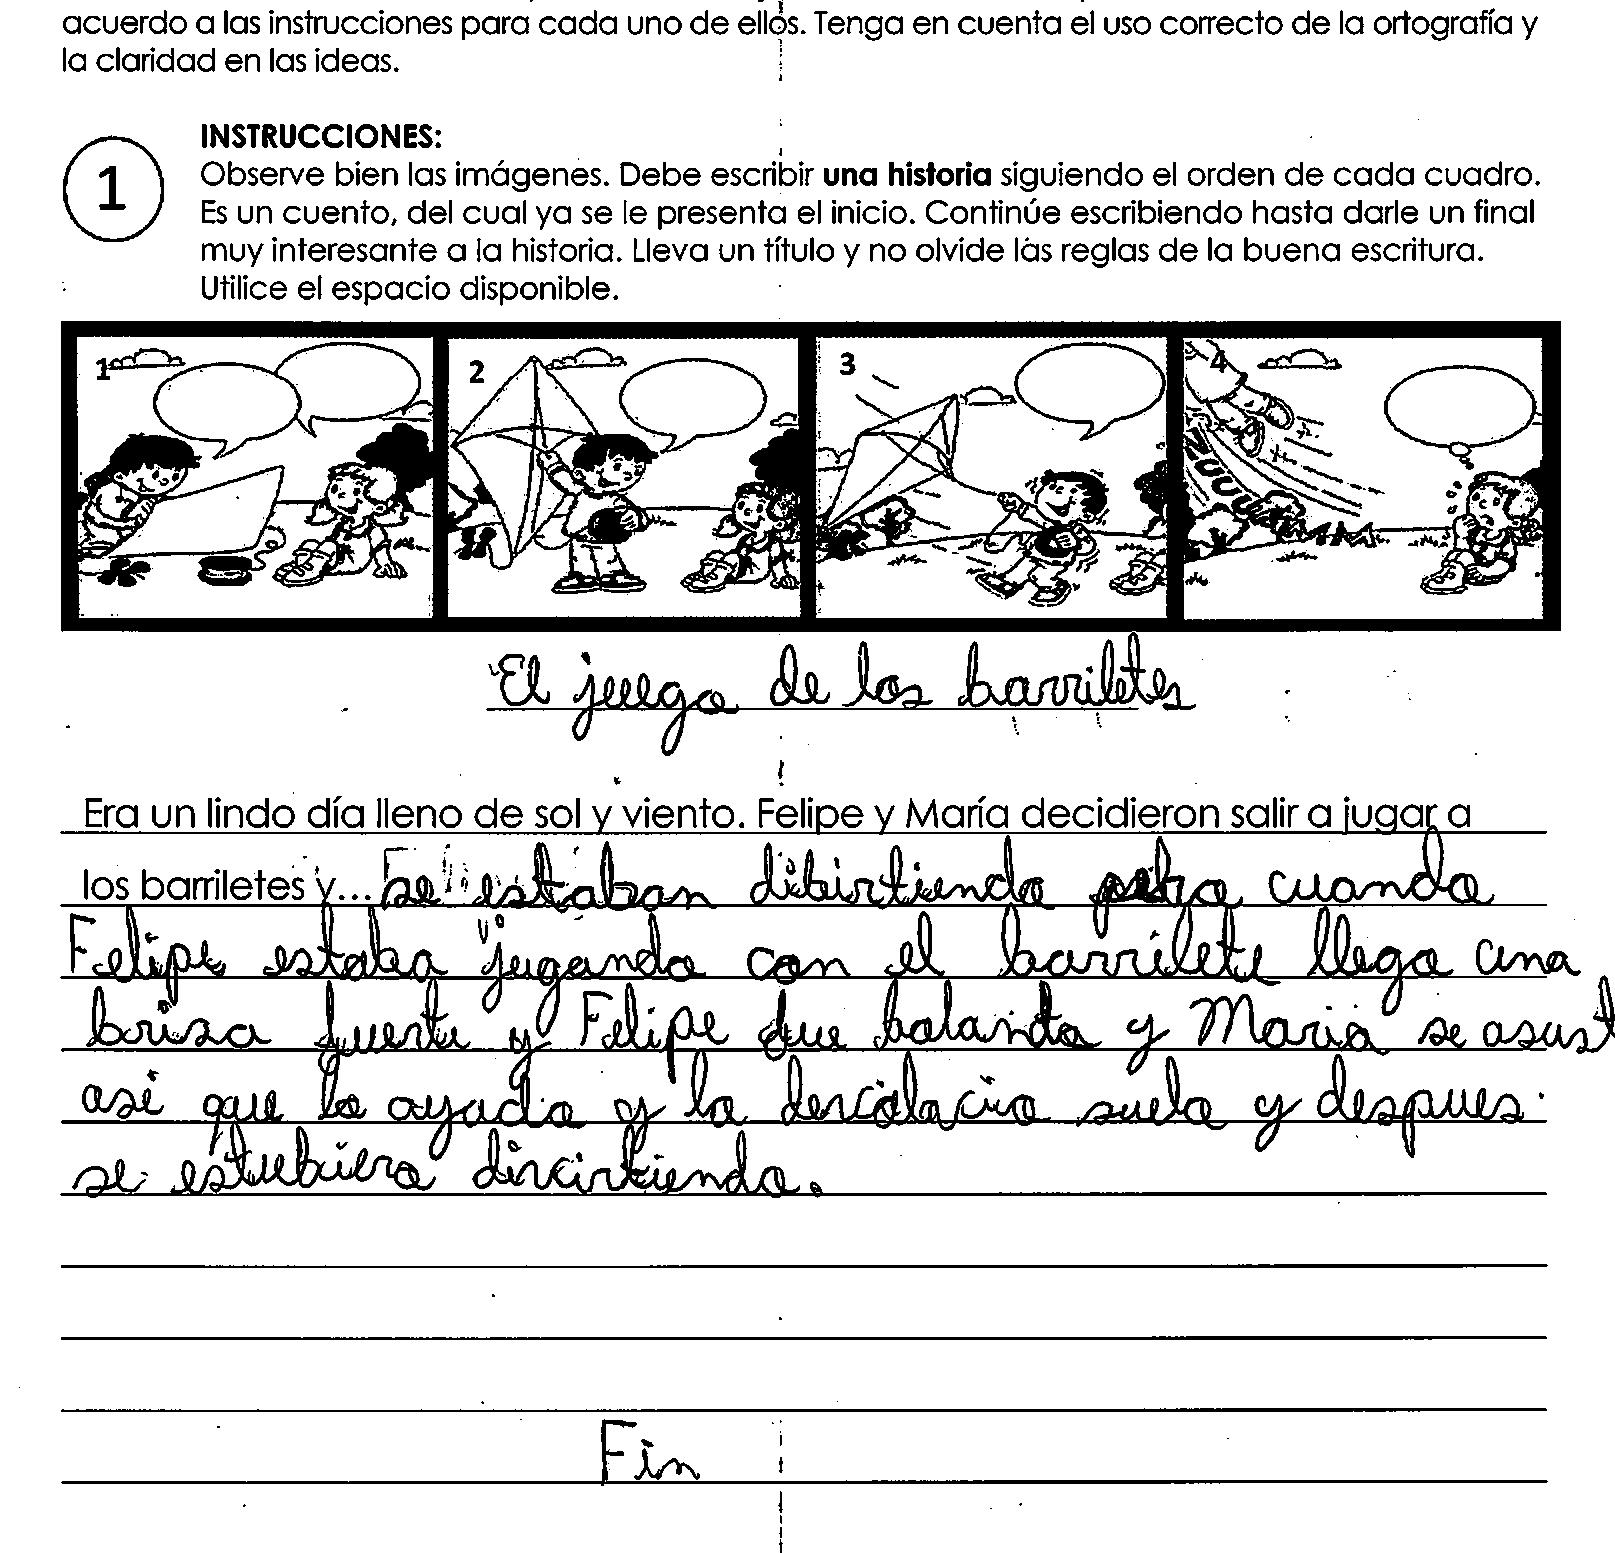 acuerdo a las instrucciones para cada uno de ellos. Tenga en cuenta el uso correcto de la ortografía y
la claridad en las ideas.
1
INSTRUCCIONES:
Observe bien las imágenes. Debe escribir una historia siguiendo el orden de cada cuadro.
Es un cuento, del cual ya se le presenta el inicio. Continúe escribiendo hasta darle un final
muy interesante a la historia. Lleva un título y no olvide las reglas de la buena escritura.
Utilice el espacio disponible.
1 2 3 4
ZUUU
El juego de los barriletes
Era un lindo día lleno de sol y viento. Felipe y María decidieron salir a jugar a
los barriletes y... se estaban dibirtiendo pero cuando
Felipe estaba jugando con el barrilete llego una
brisa fuerte y Felipe fue bolando y Maria se asust
asi que lo ayudo y lo suelo y despues
se estubiero divirtiendo.
Fin